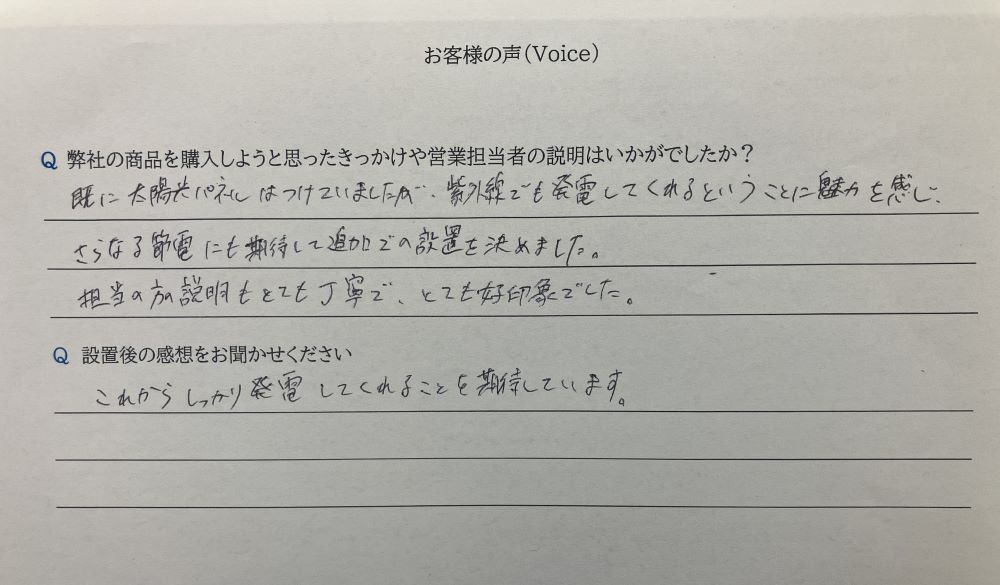 お客様の声(Voice)
Q 弊社の商品を購入しようと思ったきっかけや営業担当者の説明はいかがでしたか?
既に太陽光パネルはつけていましたが、紫外線でも発電してくれるということに魅力を感じ、
さらなる節電にも期待して追加での設置を決めました。
担当の方の説明もとても丁寧で、とても好印象でした。
Q 設置後の感想をお聞かせください
これからしっかり発電してくれることを期待しています。